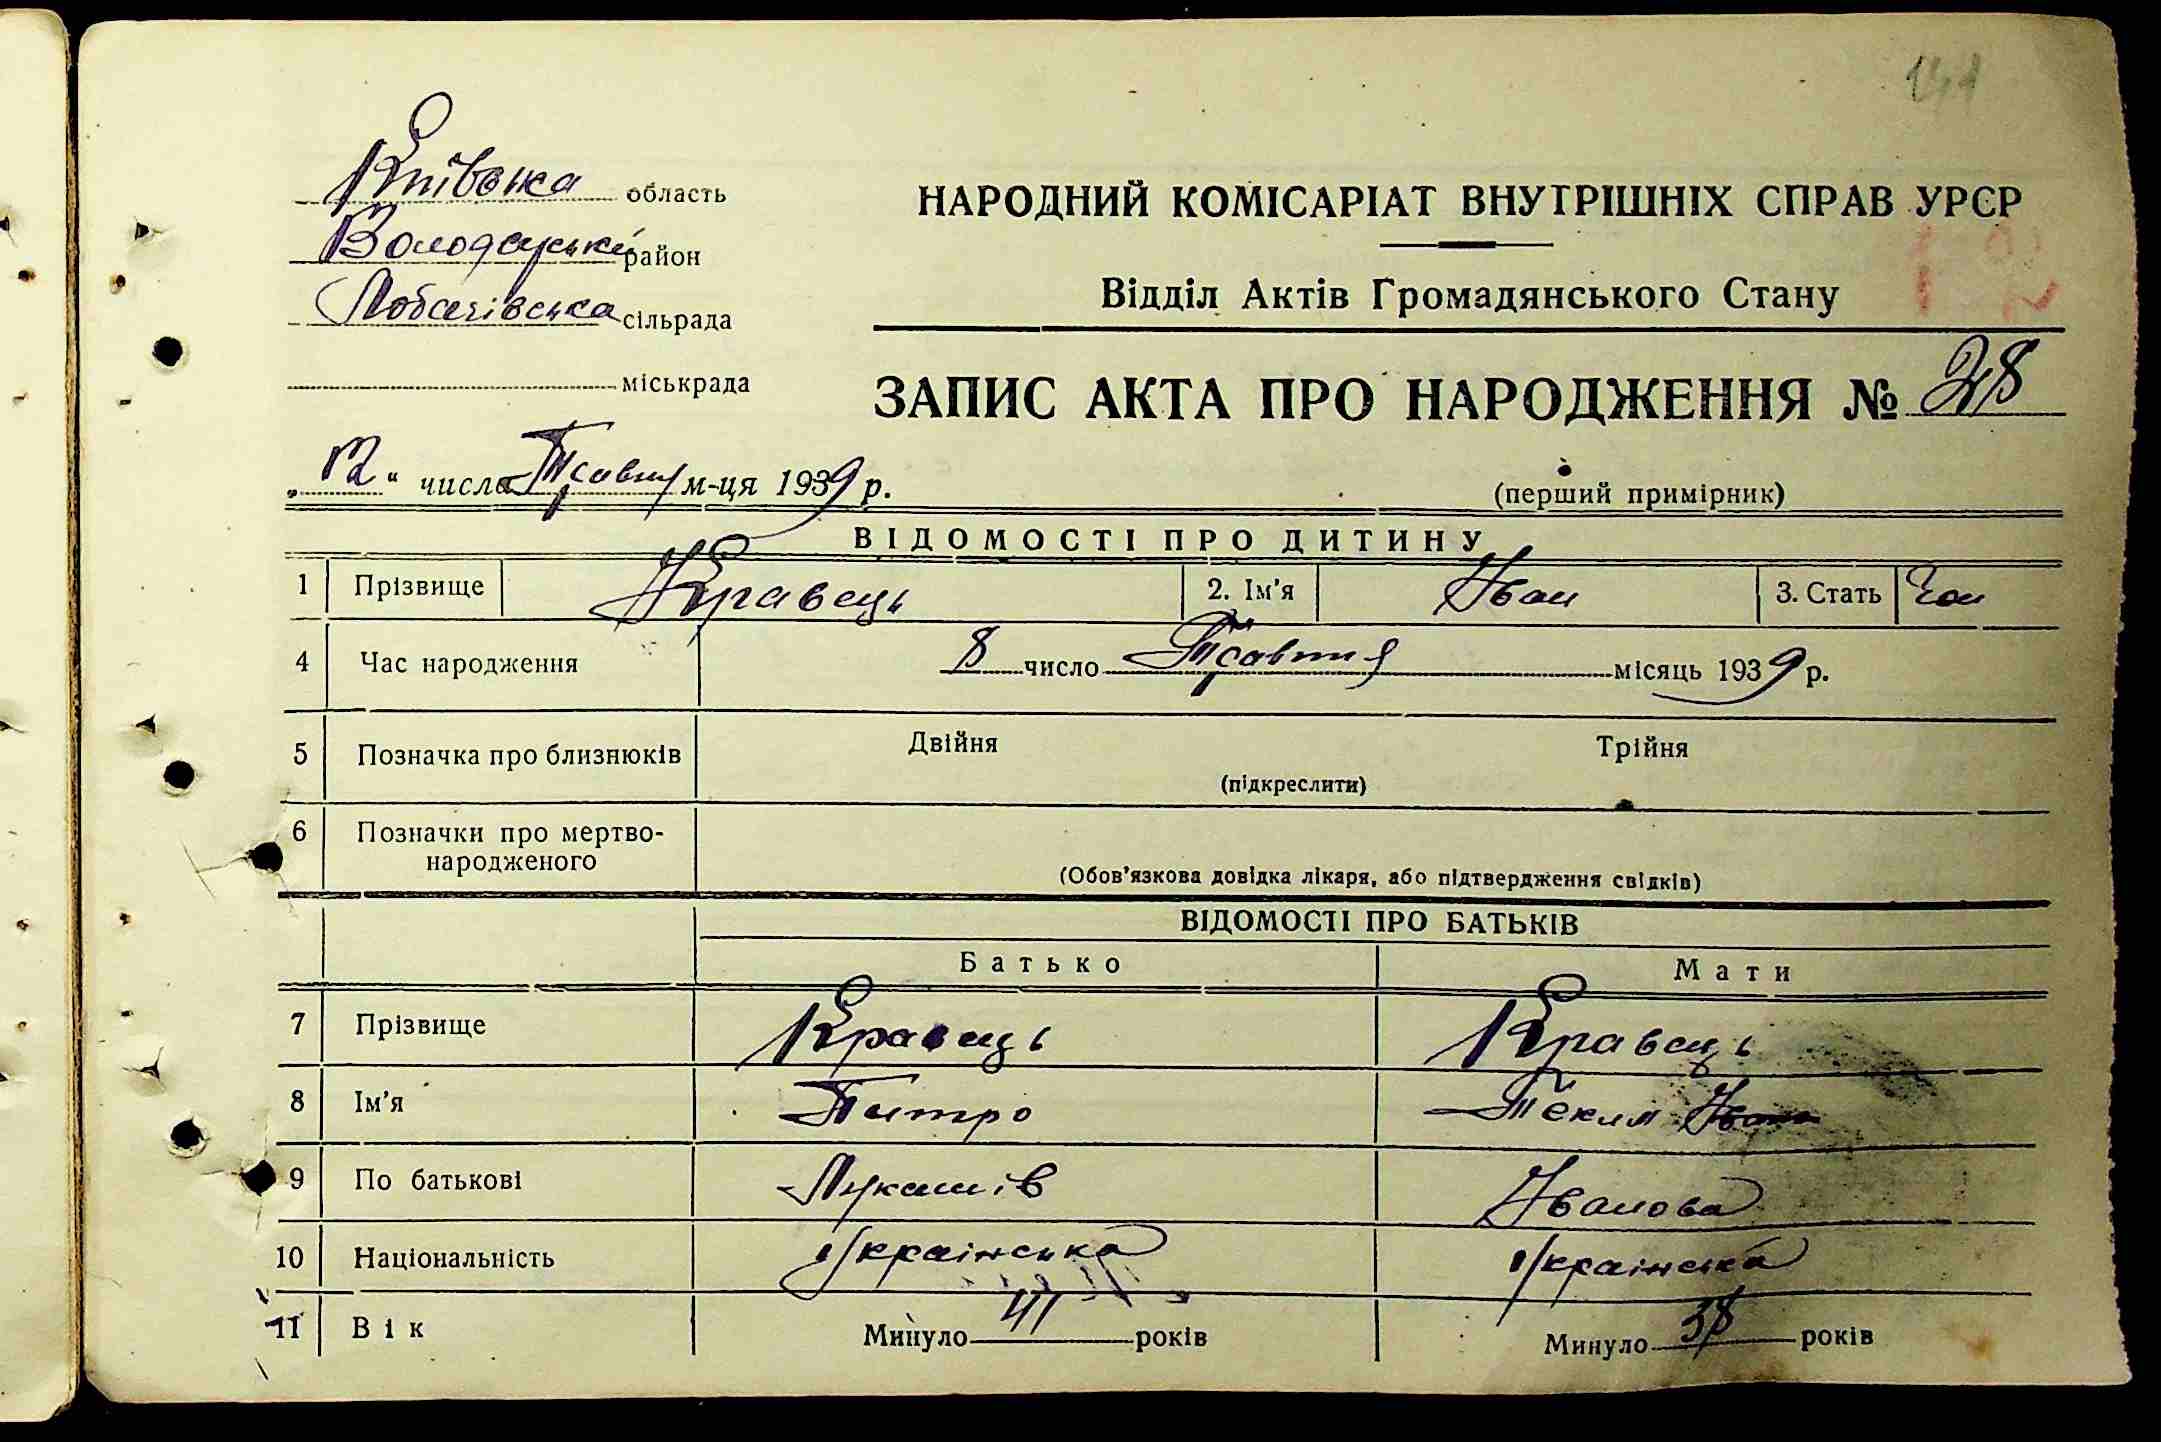 141
Київська область
Володарський район
НАРОДНИЙ КОМІСАРІАТ ВНУТРІШНІХ СПРАВ УРСР
Відділ Актів Громадянського Стану
Лобачівська сільрада
міськрада
ЗАПИС АКТА ПРО НАРОДЖЕННЯ № 28
„12“ число Травня м-ця 1939 р.
(перший примірник)
ВІДОМОСТІ ПРО ДИТИНУ
1 Прізвище Кравець 2. Ім'я Іван 3. Стать Чол
4 Час народження 8 число Травня місяць 1939 р.
5 Позначка про близнюків Двійня Трійня
(підкреслити)
6 Позначки про мертво-
народженого
(Обов'язкова довідка лікаря, або підтвердження свідків)
ВІДОМОСТІ ПРО БАТЬКІВ
Батько Мати
7 Прізвище Кравець Кравець
8 Ім'я Питро Текля
9 По батькові Лукашів Іванова
10 Національність Українська Українська
11 Вік Минуло 41 років Минуло 38 років